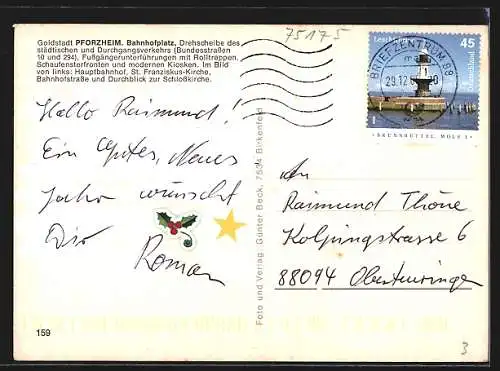 Goldstadt PFORZHEIM. Bahnhofplatz, Drehscheibe des
städtischen und Durchgangsverkehrs (Bundesstraßen
10 und 294), Fußgängerunterführungen mit Rolltreppen,
Schaufensterfronten und modernen Kiosken. Im Bild
von links: Hauptbahnhof, St. Franziskus-Kirche,
Bahnhofstraße und Durchblick zur Schloßkirche.
75175
Hallo Raimund!
Ein gutes, Neues
Jahr wünscht
Dir
Roman
159
Foto und Verlag: Günter Beck, 7534 Birkenfeld
45
Deutschland
BRIEFZENTRUM 88
29.12.
BRUNSBÜTTEL, MOLE 1
An
Raimund Thöne
Kolpingstrasse 6
88094 Oberteuringen
3